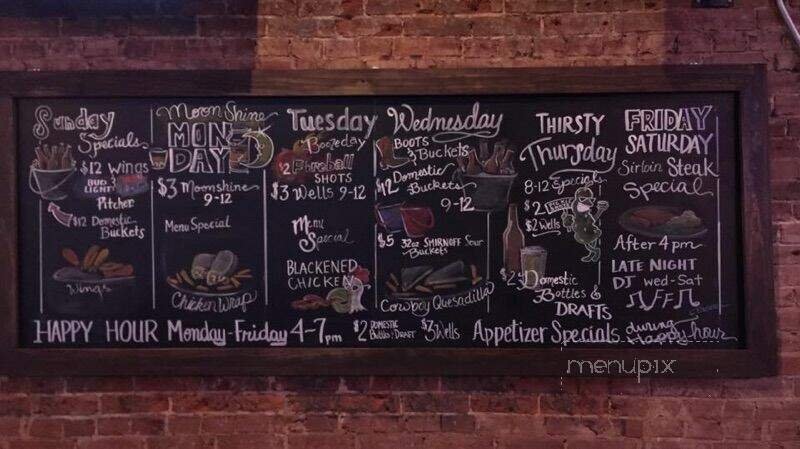 Sunday
Specials
$12 Wings
BUD LIGHT
Pitcher
$12 Domestic
Buckets
Wings
Moonshine
MON
DAY
$3 Moonshine
9-12
Menu Special
Chicken Wrap
Tuesday
Boozeday
$2 Fireball
SHOTS
$3 Wells 9-12
Menu
Special
BLACKENED
CHICKEN
Wednesday
BOOTS
& Buckets
$12 Domestic
Buckets
9-12
$5 32oz SMIRNOFF Sour
Buckets
Cowboy Quesadilla
THIRSTY
Thursday
8-12 Specials
$2
$2 Wells
$2 Domestic
Bottles &
DRAFTS
FRIDAY
SATURDAY
Sirloin Steak
Special
After 4pm
LATE NIGHT
DJ Wed-Sat
HAPPY HOUR Monday-Friday 4-7pm $2 DOMESTIC DRAFT $3 Wells Appetizer Specials during Happy hour
menupix